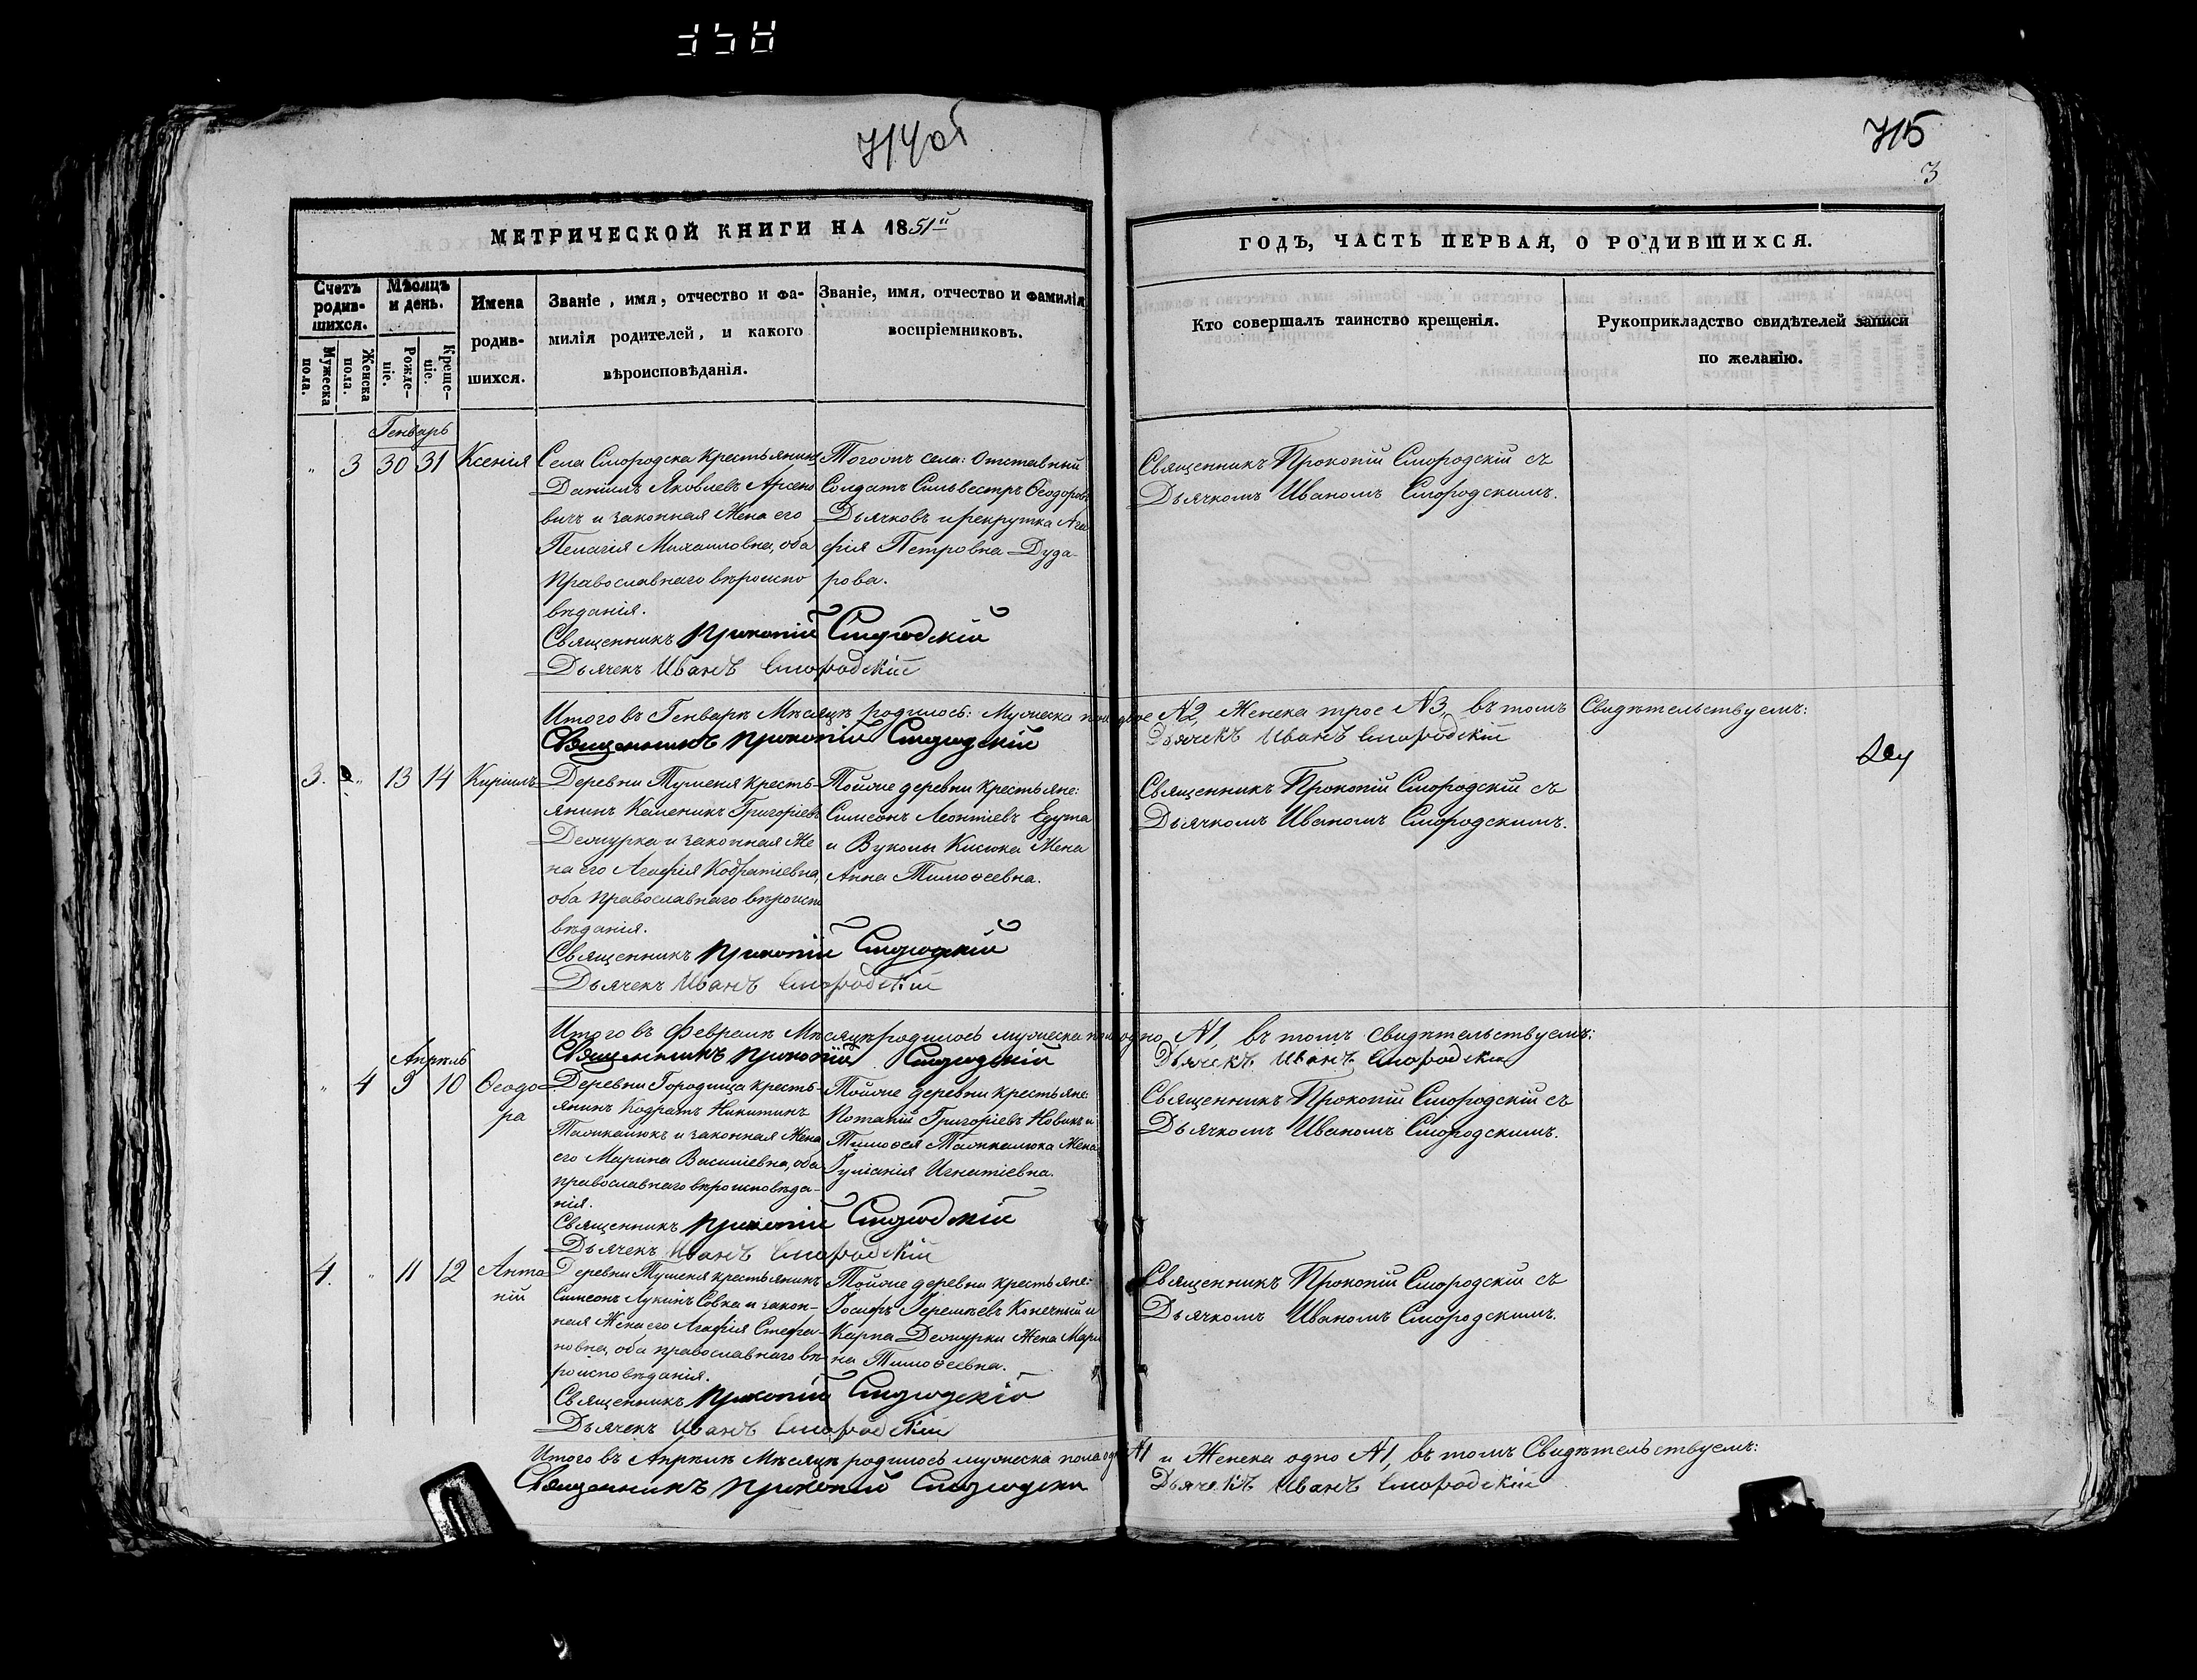 714 об
715
3
МЕТРИЧЕСКОЙ КНИГИ НА 1851й
ГОДЪ, ЧАСТЬ ПЕРВАЯ, О РОДИВШИХСЯ.
Счетъ родившихся.
Мужеска пола.
Женска пола.
Мѣсяцъ и день.
Рожденіе.
Крещеніе.
Имена родившихся.
Званіе, имя, отчество и фамилія родителей, и какого вѣроисповѣданія.
Званіе, имя, отчество и фамилія воспріемниковъ.
Кто совершалъ таинство крещенія.
Рукоприкладство свидѣтелей записи по желанію.
Генварь
" 3 30 31 Ксенія
Села Смородска крестьянинъ
Даніилъ Яковлевъ Арсено
вичъ и законная Жена его
Пелагія Михаиловна, оба
православнаго вѣроиспо
вѣданія.
Тогожъ села: Отставный
Солдатъ Сильвестръ Ѳеодоровъ
Дьячковъ и рекрутка Ага
фія Петровна Дуда-
рова.
Священникъ Прокопій Смородскій съ
Дьячкомъ Иваномъ Смородскимъ.
Священникъ Прокопій Смородскій
Дьячекъ Иванъ Смородскій
Итого въ Генварѣ Мѣсяцѣ родилось: Мужеска пола двое №2, Женска трое №3, въ томъ Свидѣтельствуемъ:
Священникъ Прокопій Смородскій
Дьячекъ Иванъ Смородскій
3. " 13 14 Кириллъ
Деревни Туменя кресть-
янинъ Калѣникъ Григоріевъ
Демурка и законная Же
на его Агафія Кодратіевна,
оба православнаго вѣроиспо
вѣданія.
Тойже деревни крестьяне:
Симеонъ Леонтіевъ Едута
и Вуколы Кисюка Жена
Анна Тимоѳеевна.
Священникъ Прокопій Смородскій съ
Дьячкомъ Иваномъ Смородскимъ.
Священникъ Прокопій Смородскій
Дьячекъ Иванъ Смородскій
Итого въ Февралѣ Мѣсяцѣ родилось мужеска пола одно №1, въ томъ свидѣтельствуемъ:
Священникъ Прокопій Смородскій
Дьячекъ Иванъ Смородскій
Апрѣль
" 4 9 10 Ѳеодо
ра
Деревни Городища кресть-
янинъ Кодратъ Никитинъ
и законная Жена
его Марина Василіевна, оба
православнаго вѣроисповѣда-
нія.
Тойже деревни крестьяне:
Потапій Григоріевъ Новикъ и
Тимоѳея Жена
Іуліанія Игнатіевна.
Священникъ Прокопій Смородскій съ
Дьячкомъ Иваномъ Смородскимъ.
Священникъ Прокопій Смородскій
Дьячекъ Иванъ Смородскій
4. " 11 12 Анто
ній
Деревни Туменя крестьянинъ
Симеонъ Лукинъ Совка и закон-
ная Жена его Агафія Стефа-
новна, оба православнаго вѣ-
роисповѣданія.
Тойже деревни крестьяне:
Іосифъ Іеремѣевъ Конечный и
Карпа Демурки Жена Мари
на Тимоѳеевна.
Священникъ Прокопій Смородскій съ
Дьячкомъ Иваномъ Смородскимъ.
Священникъ Прокопій Смородскій
Дьячекъ Иванъ Смородскій
Итого въ Апрѣлѣ Мѣсяцѣ родилось мужеска пола одно №1 и Женска одно №1, въ томъ Свидѣтельствуемъ:
Священникъ Прокопій Смородскій
Дьячекъ Иванъ Смородскій